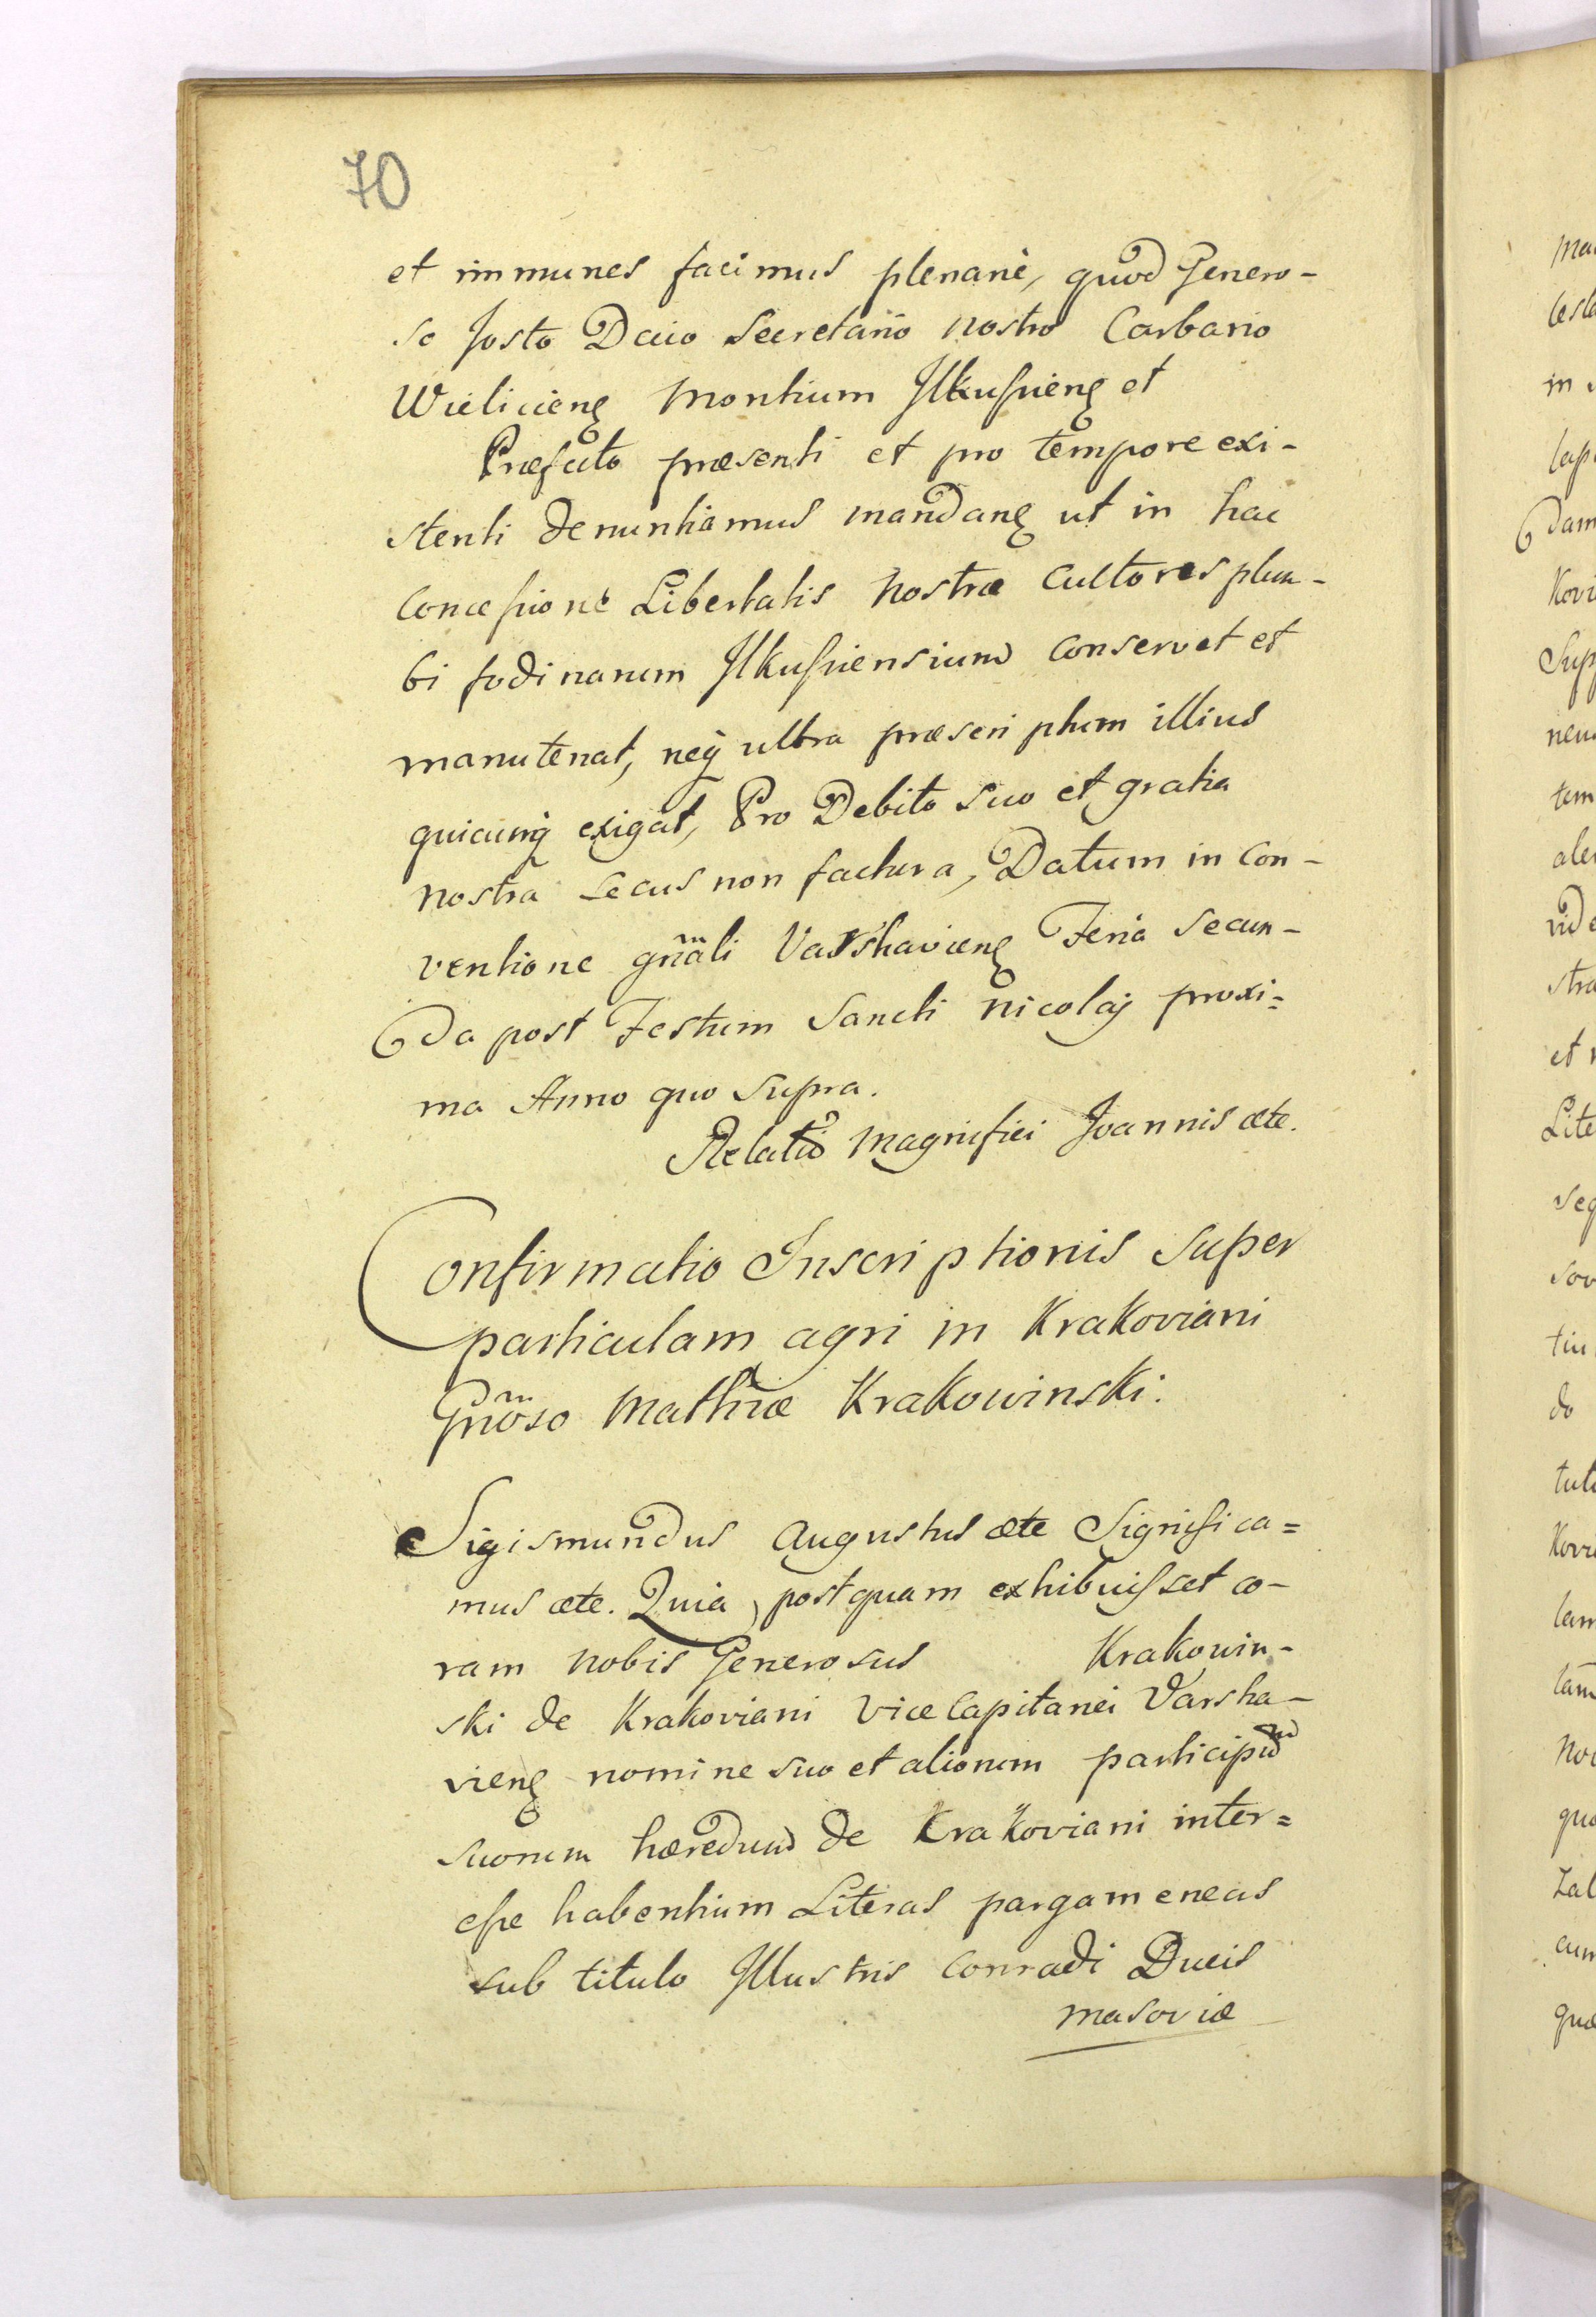 70
et immunes facimus plenarié, quod Genero-
so Josto Decio Secretario nostro Carbario
Wieliciens Montium Ilkusiens et
Præfecto præsenti et pro tempore exi-
stenti denuntiamus mandans ut in hac
Concessione Libertatis Nostræ Cultores plum-
bi fodinarum Ilkusiensium conservet et
manutenat, neq ultra præscriptum illius
quicunq exigat, Pro Debito suo et gratia
nostra secus non factura, Datum in Con-
ventione gnãli Varshaviens Feria Secun-
da post Festum Sancti Nicolaj proxi=
ma Anno quo supra.
Relatio Magnifici Joannis etc.
Confirmatio Inscriptionis super
particulam agri in Krakoviani
Gnõso Mathiæ Krakowinski.
Sigismundus Augustus etc Significa=
mus etc. Quia postquam exhibuisset co-
ram nobis Generosus Krakowin-
ski de Krakoviani Vice Capitanei Varsha-
viens nomine suo et aliorum participum
suorum hæredum de Krakoviani inter=
esse habentium Literas pargameneas
sub titulo Illustris Conradi Ducis
Masoviæ